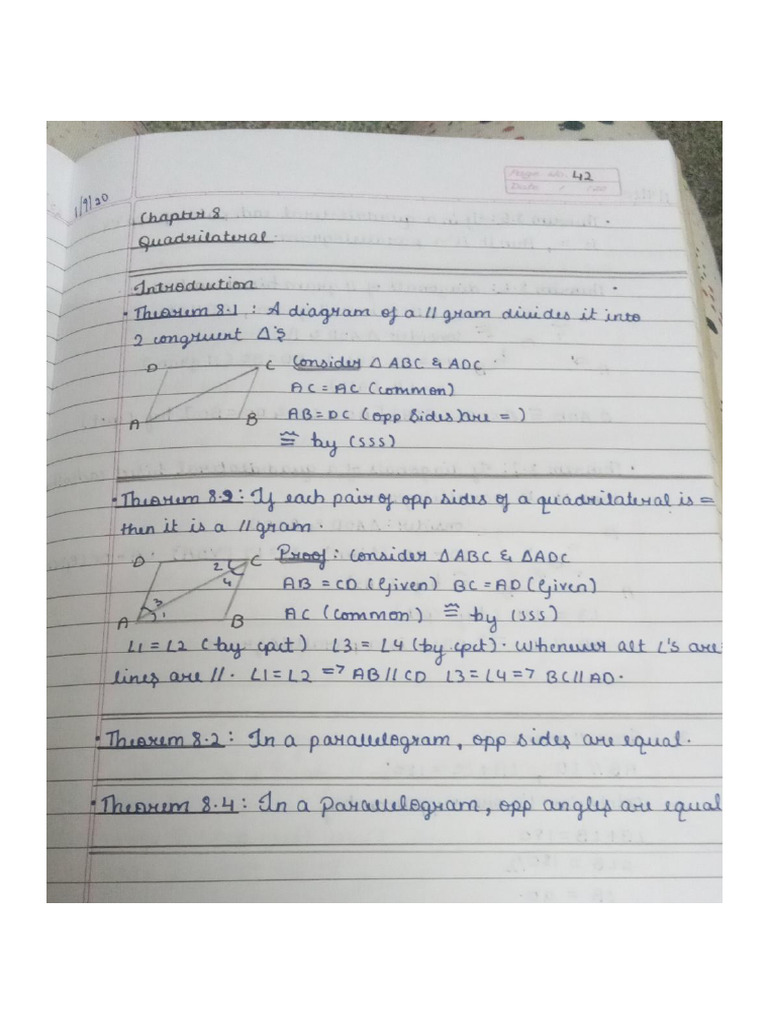 Page No. 42
Date / /20
1/9/20
Chapter 8
Quadrilateral
Introduction
• Theorem 8.1 : A diagram of a // gram divides it into
2 congruent Δ's
D C Consider Δ ABC & ADC
AC = AC (common)
A B AB = DC (opp sides are = )
≅ by (SSS)
• Theorem 8.9 : If each pair of opp sides of a quadrilateral is =
then it is a // gram.
D 2 C Proof : Consider ΔABC & ΔADC
4 AB = CD (Given) BC = AD (Given)
A 3 1 B AC (Common) ≅ by (SSS)
L1 = L2 (by cpct) L3 = L4 (by cpct). Whenever alt L's are
lines are //. L1 = L2 => AB // CD L3 = L4 => BC // AD.
• Theorem 8.2 : In a parallelogram, opp sides are equal.
• Theorem 8.4 : In a Parallelogram, opp angles are equal